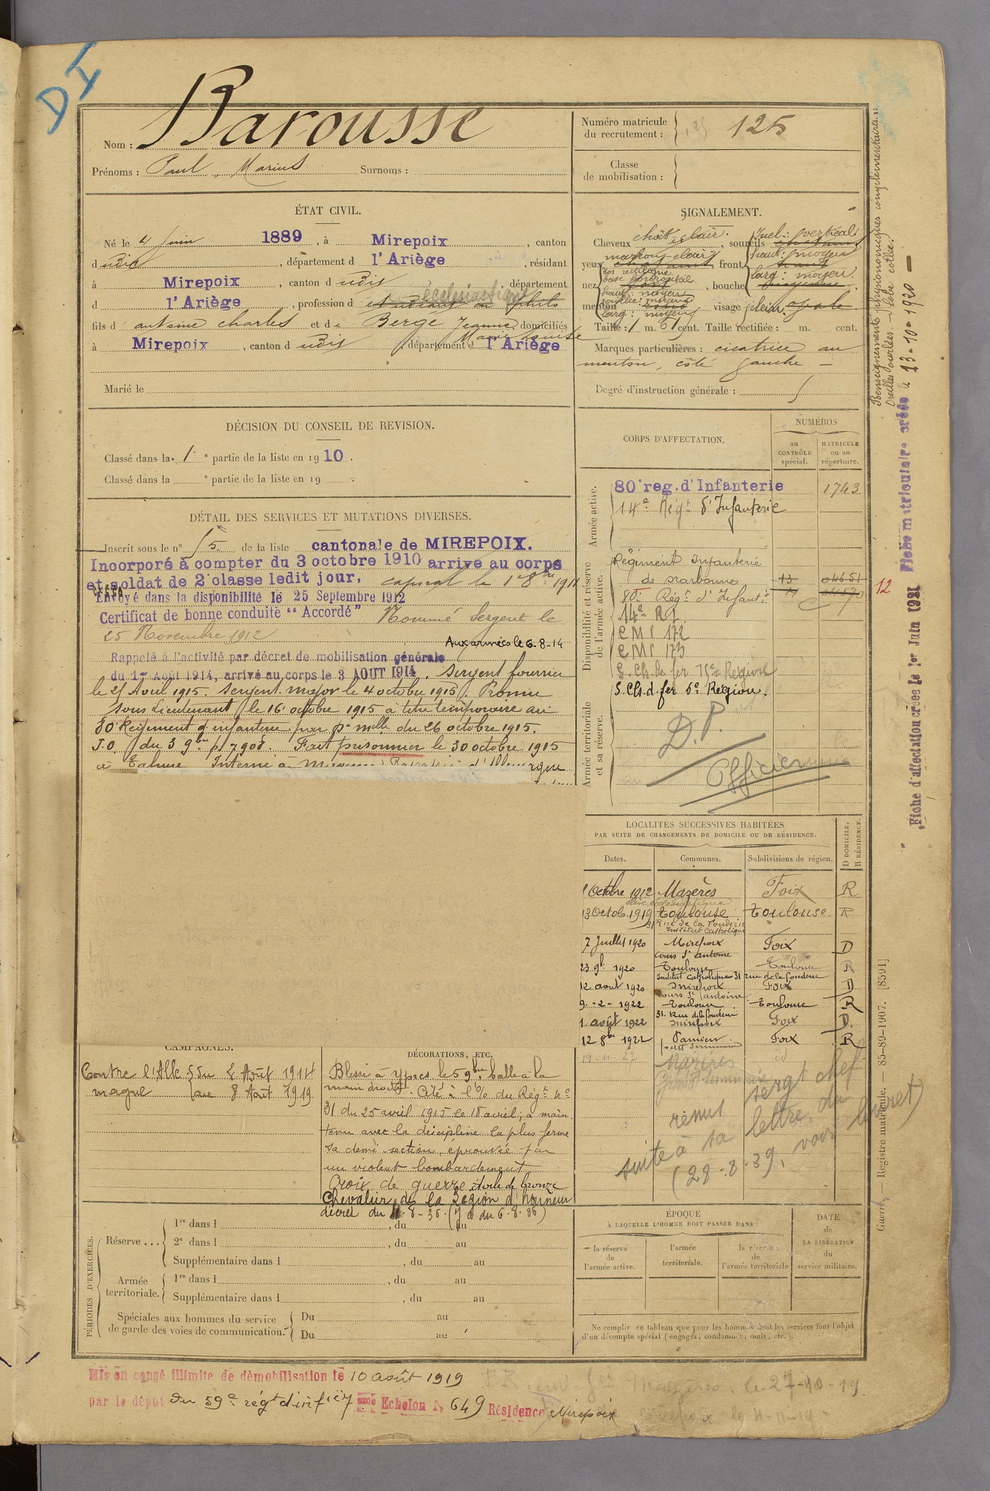 DI
Nom : Barousse
Prénoms : Paul, Marius Surnoms :
Numéro matricule du recrutement : 125
Classe de mobilisation :
ÉTAT CIVIL.
Né le 4 juin 1889, à Mirepoix, canton
dudit, département d l'Ariège, résidant
à Mirepoix, canton d udit, département
d l'Ariège, profession d ecclésiastique
fils d' antoine charles et de Berge Jeanne Marie Louise domiciliés
à Mirepoix, canton d udit, département d l'Ariège
Marié le
SIGNALEMENT.
Cheveux chât. clair, sourcils
yeux marron clair, front
nez, bouche
menton, visage
Taille : 1 m. 61 cent. Taille rectifiée : m. cent.
Marques particulières : cicatrice au
menton, côté gauche
Degré d'instruction générale : 5
DÉCISION DU CONSEIL DE REVISION.
Classé dans la 1e partie de la liste en 1910.
Classé dans la partie de la liste en 19
DÉTAIL DES SERVICES ET MUTATIONS DIVERSES.
Inscrit sous le n° 15 de la liste cantonale de MIREPOIX.
Incorporé à compter du 3 octobre 1910 arrivé au corps
et soldat de 2e classe ledit jour, caporal le 1911
Envoyé dans la disponibilité le 25 Septembre 1912
Certificat de bonne conduite "Accordé" Nommé Sergent le
25 Novembre 1912
Aux armées le 6.8.14
Rappelé à l'activité par décret de mobilisation générale
du 1er Août 1914, arrivé au corps le 3 AOUT 1914. Sergent fourrier
le 21 Avril 1915. Sergent major le 4 octobre 1915. Promu
sous lieutenant le 16 octobre 1915 à titre temporaire au
80e Régiment d'infanterie par don melle du 26 octobre 1915.
J.O. du 3 9bre p. 7908. Fait prisonnier le 30 octobre 1915
à Tahure Interné à
CORPS D'AFFECTATION.
NUMÉROS
au CONTRÔLE spécial.
MATRICULE ou au répertoire.
Armée active.
80e reg. d'Infanterie 1743
14e Régt d'Infanterie
Disponibilité et réserve de l'armée active.
Régiment Infanterie
de Narbonne
80e Régt d'Infantie
14e R.I.
CMI 172
CMI 173
S. Ch. de fer Région
S. Ch. d. fer Région.
Armée territoriale et sa réserve.
D.P.
Officier
12
LOCALITÉS SUCCESSIVES HABITÉES
PAR SUITE DE CHANGEMENTS DE DOMICILE OU DE RÉSIDENCE.
Dates. Communes. Subdivisions de région. D DOMICILE. R RÉSIDENCE.
1 Octobre 1912 Mazères Foix R
13 Octob. 1919 Toulouse Toulouse R
31 Rue de la Fonderie
Institut Catholique
7 Juillet 1920 Mirepoix Foix D
cours St Antoine
23 9b 1920 Toulouse Toulouse R
Institut Catholique 31 rue de la Fonderie
12 août 1920 Mirepoix Foix D
cours St Antoine
9-2-1922 Toulouse Toulouse R
31. Rue de la Fonderie
1. août 1922 Mirepoix Foix D.
12 8bre 1922 Pamiers Foix R
Mazères id
remis sergt chef
suite à sa lettre du
(28-8-39, voir livret)
CAMPAGNES.
Contre l'Alle- du 2 Août 1914
magne au 8 Août 1919
DÉCORATIONS, ETC.
Blessé à Ypres le 5 9bre balle à la
main droite. Cité à l'O/ du Régt n°
31 du 25 avril 1915 le 18 avril; a main-
tenu avec la discipline la plus ferme
sa demi section, éprouvée par
un violent bombardement
Croix de guerre étoile de bronze
Chevalier de la Légion d'honneur
PÉRIODES D'EXERCICES.
Réserve... 1re dans l , du au
2e dans l , du au
Supplémentaire dans l , du au
Armée territoriale. 1re dans l , du au
Supplémentaire dans l , du au
Spéciales aux hommes du service de garde des voies de communication. Du au
Du au
ÉPOQUE
À LAQUELLE L'HOMME DOIT PASSER DANS :
la réserve de l'armée active.
l'armée territoriale.
la réserve de l'armée territoriale
DATE de LA LIBÉRATION du service militaire.
Ne remplir ce tableau que pour les hommes dont les services font l'objet
d'un décompte spécial (engagés, condamnés, omis, etc.).
Mis en congé illimité de démobilisation le 10 août 1919
par le dépôt du 59e régt d'infie Echelon N° 649 Résidence Mirepoix
Renseignements physionomiques complémentaires :
Oreilles ourlées - lobe collé.
Fiche matriculaire créée le 13-10-1920
Fiche d'affectation créée le 1er Juin 1921
Registre matricule. — 85-89-1907. [8591]